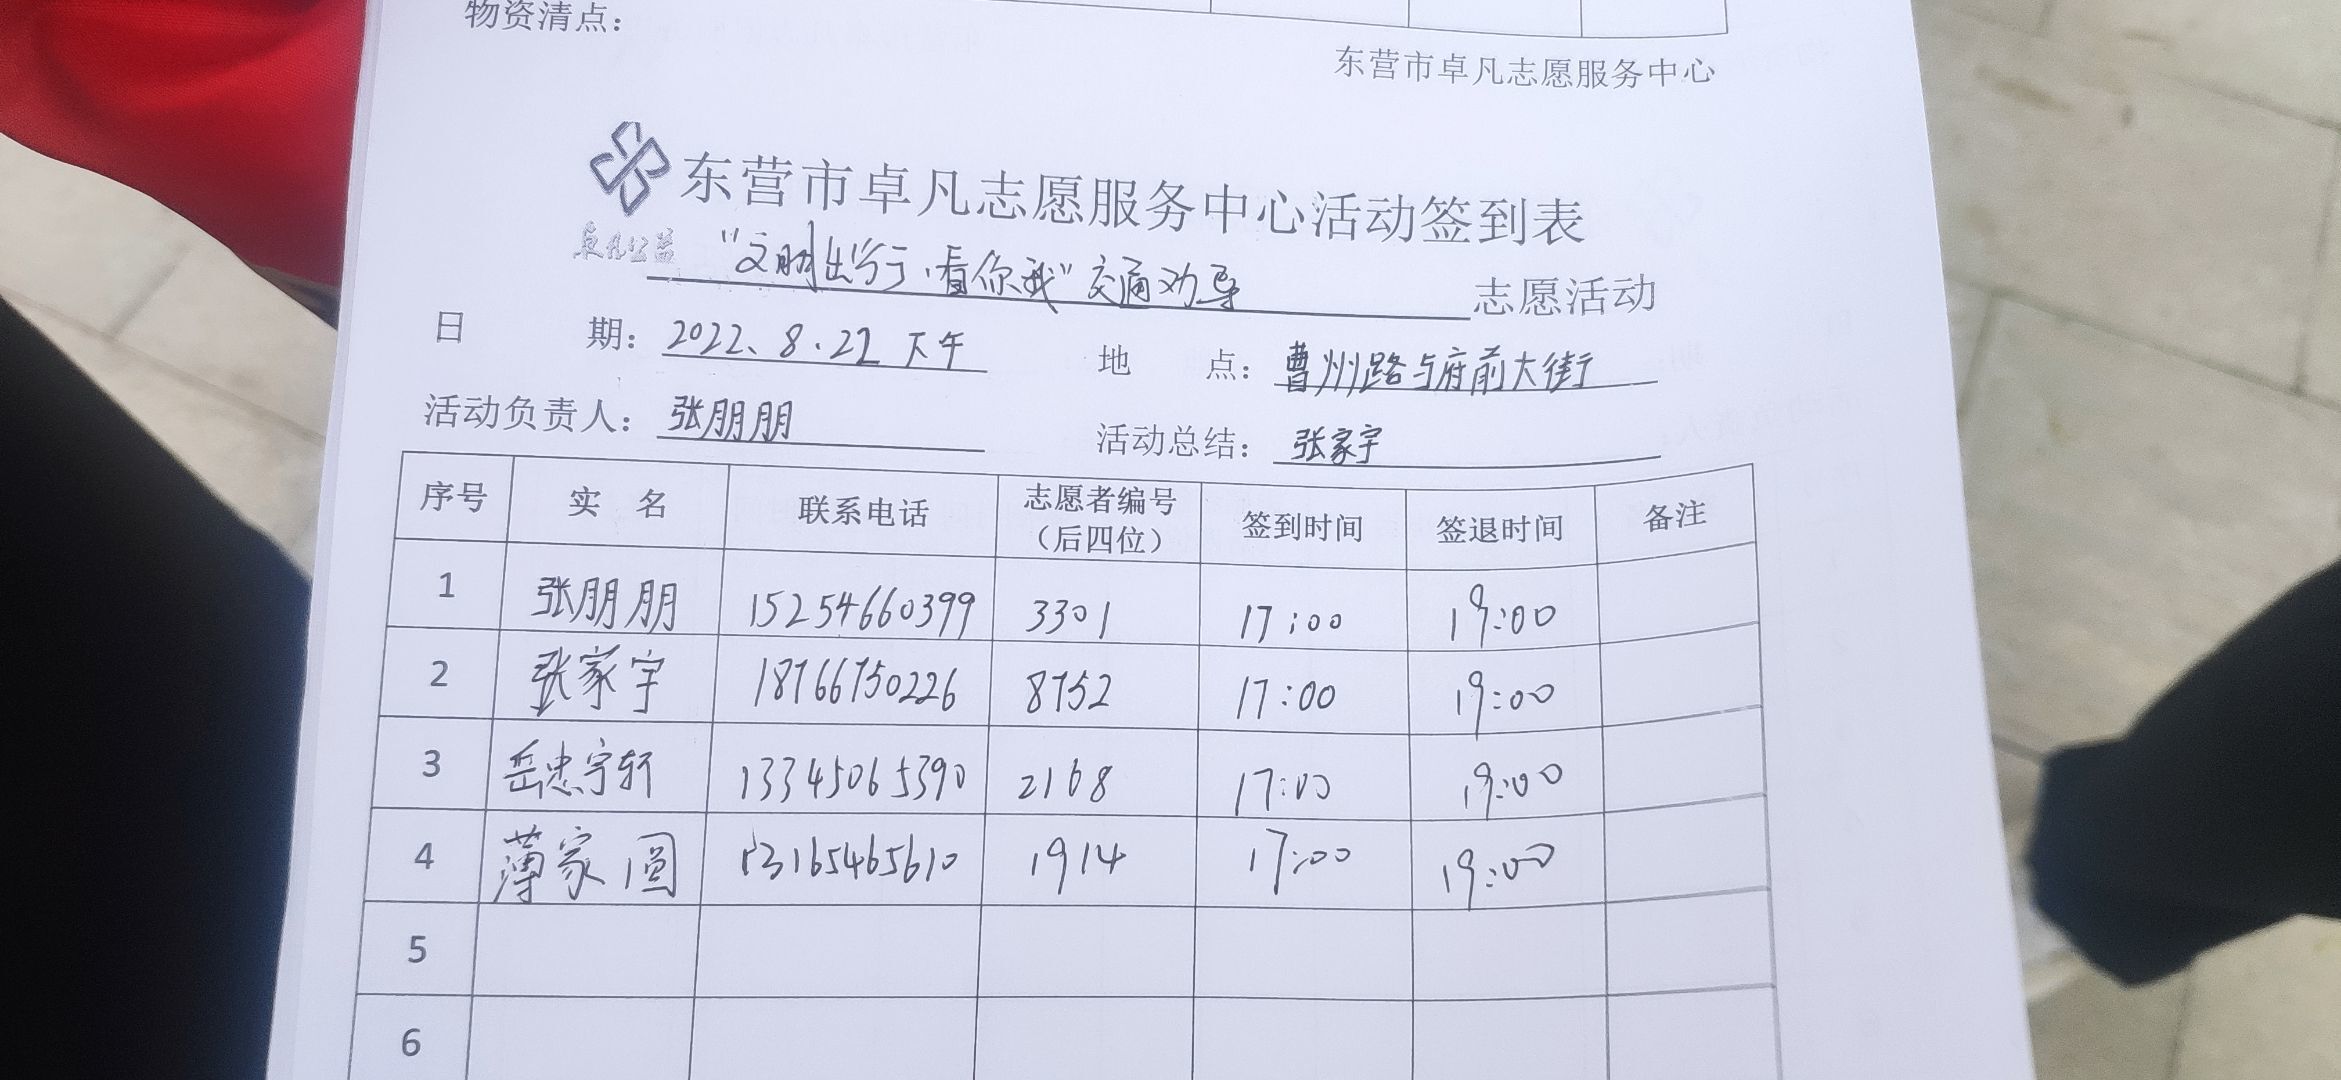 物资清点：
东营市卓凡志愿服务中心
东营市卓凡志愿服务中心活动签到表
卓凡公益
"文明出行,看你我"交通劝导 志愿活动
日 期：2022、8.22 下午 地 点：曹州路与府前大街
活动负责人：张朋朋 活动总结：张家宇
序号 实 名 联系电话 志愿者编号（后四位） 签到时间 签退时间 备注
1 张朋朋 15254660399 3301 17:00 19:00
2 张家宇 18766750226 8752 17:00 19:00
3 岳忠宇轩 13345065390 2168 17:00 19:00
4 薄家圆 13165465610 1914 17:00 19:00
5
6